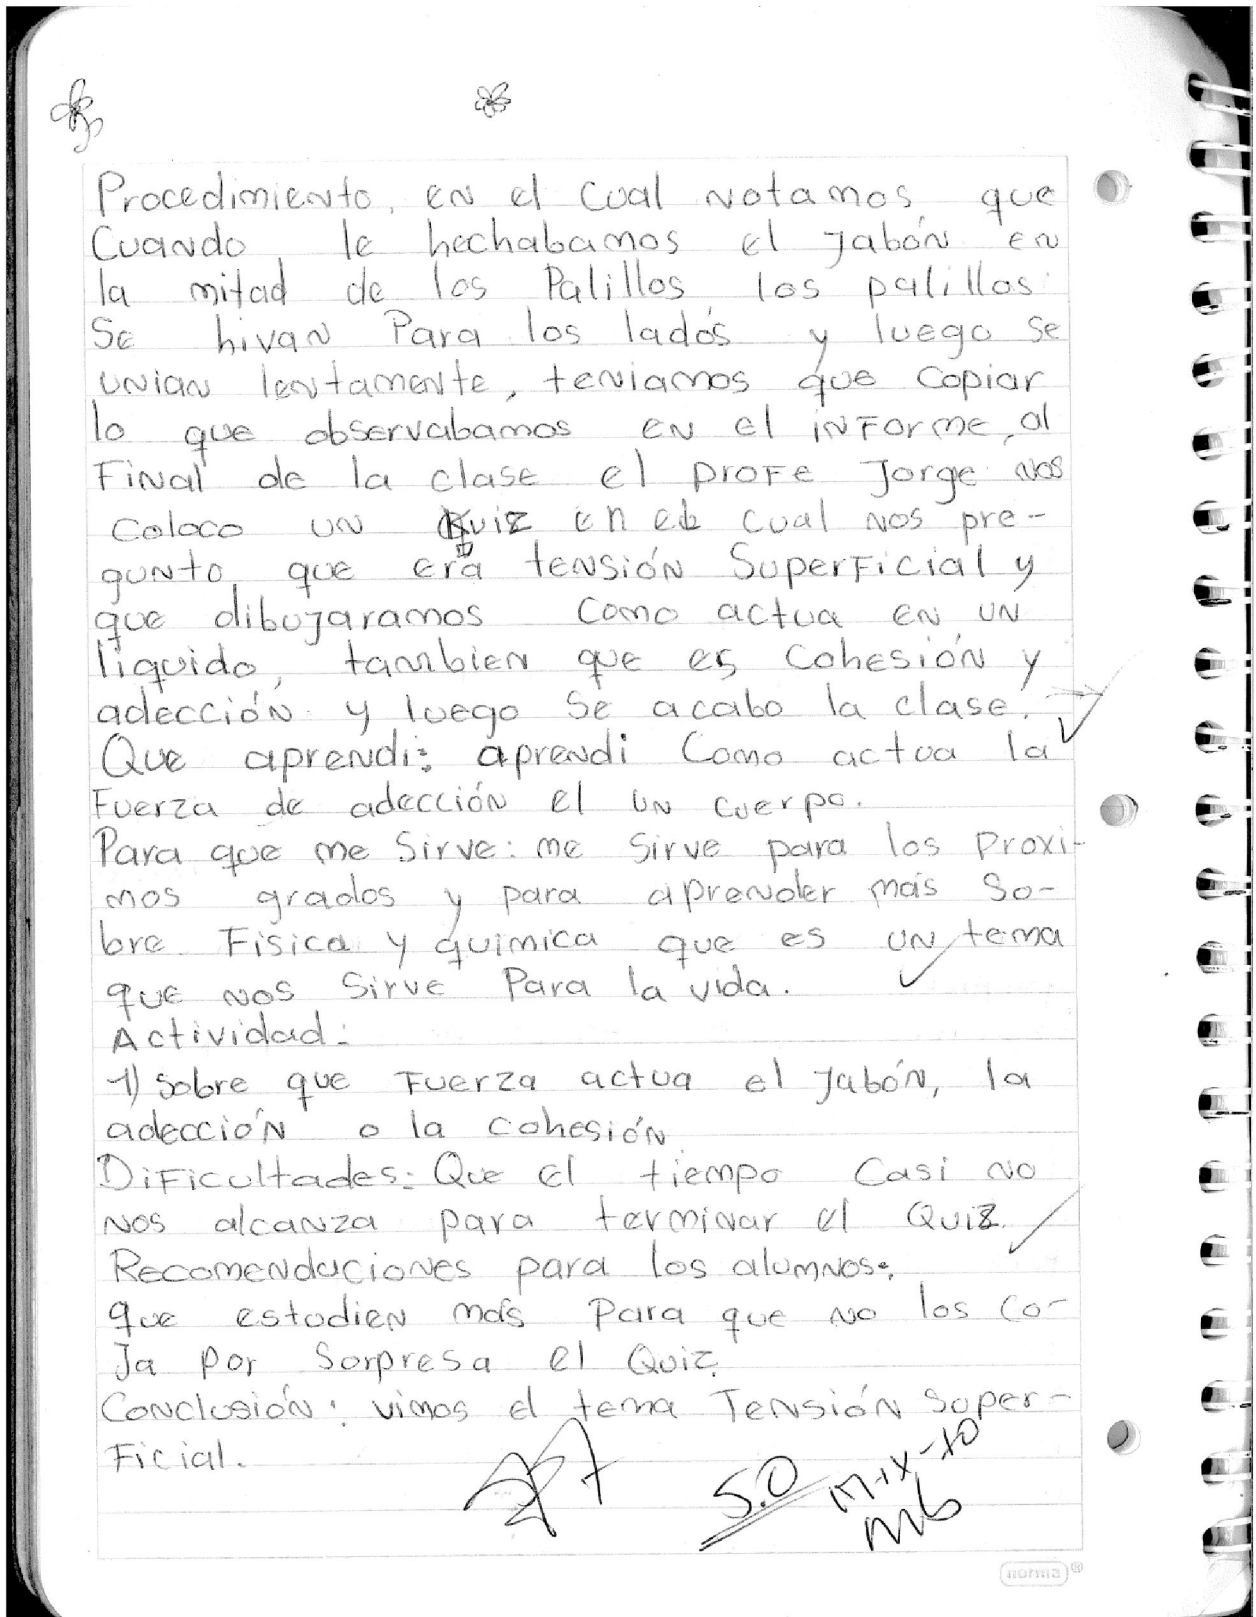 Procedimiento, en el cual notamos que
Cuando le hechabamos el jabón en
la mitad de los Palillos los palillos
Se hivan Para los lados y luego se
unian lentamente, teniamos que copiar
lo que observabamos en el informe, al
Final de la clase el profe Jorge nos
coloco un Quiz en el cual nos pre-
gunto que era tensión Superficial y
que dibujaramos como actua en un
liquido, tambien que es Cohesión y
adección y luego Se acabo la clase.
Que aprendi: aprendi Como actua la
Fuerza de adección el un cuerpo.
Para que me Sirve: me Sirve para los Proxi-
mos grados y para aprender más So-
bre Fisica y quimica que es un tema
que nos Sirve Para la vida.
Actividad:
1) Sobre que Fuerza actua el Jabón, la
adección o la cohesión
Dificultades: Que el tiempo Casi no
nos alcanza para terminar el Quiz.
Recomendaciones para los alumnos:
que estudien más Para que no los co-
Ja por Sorpresa el Quiz.
Conclusión: vimos el tema Tensión Super-
Ficial.
5.0
17-IX-10
norma®